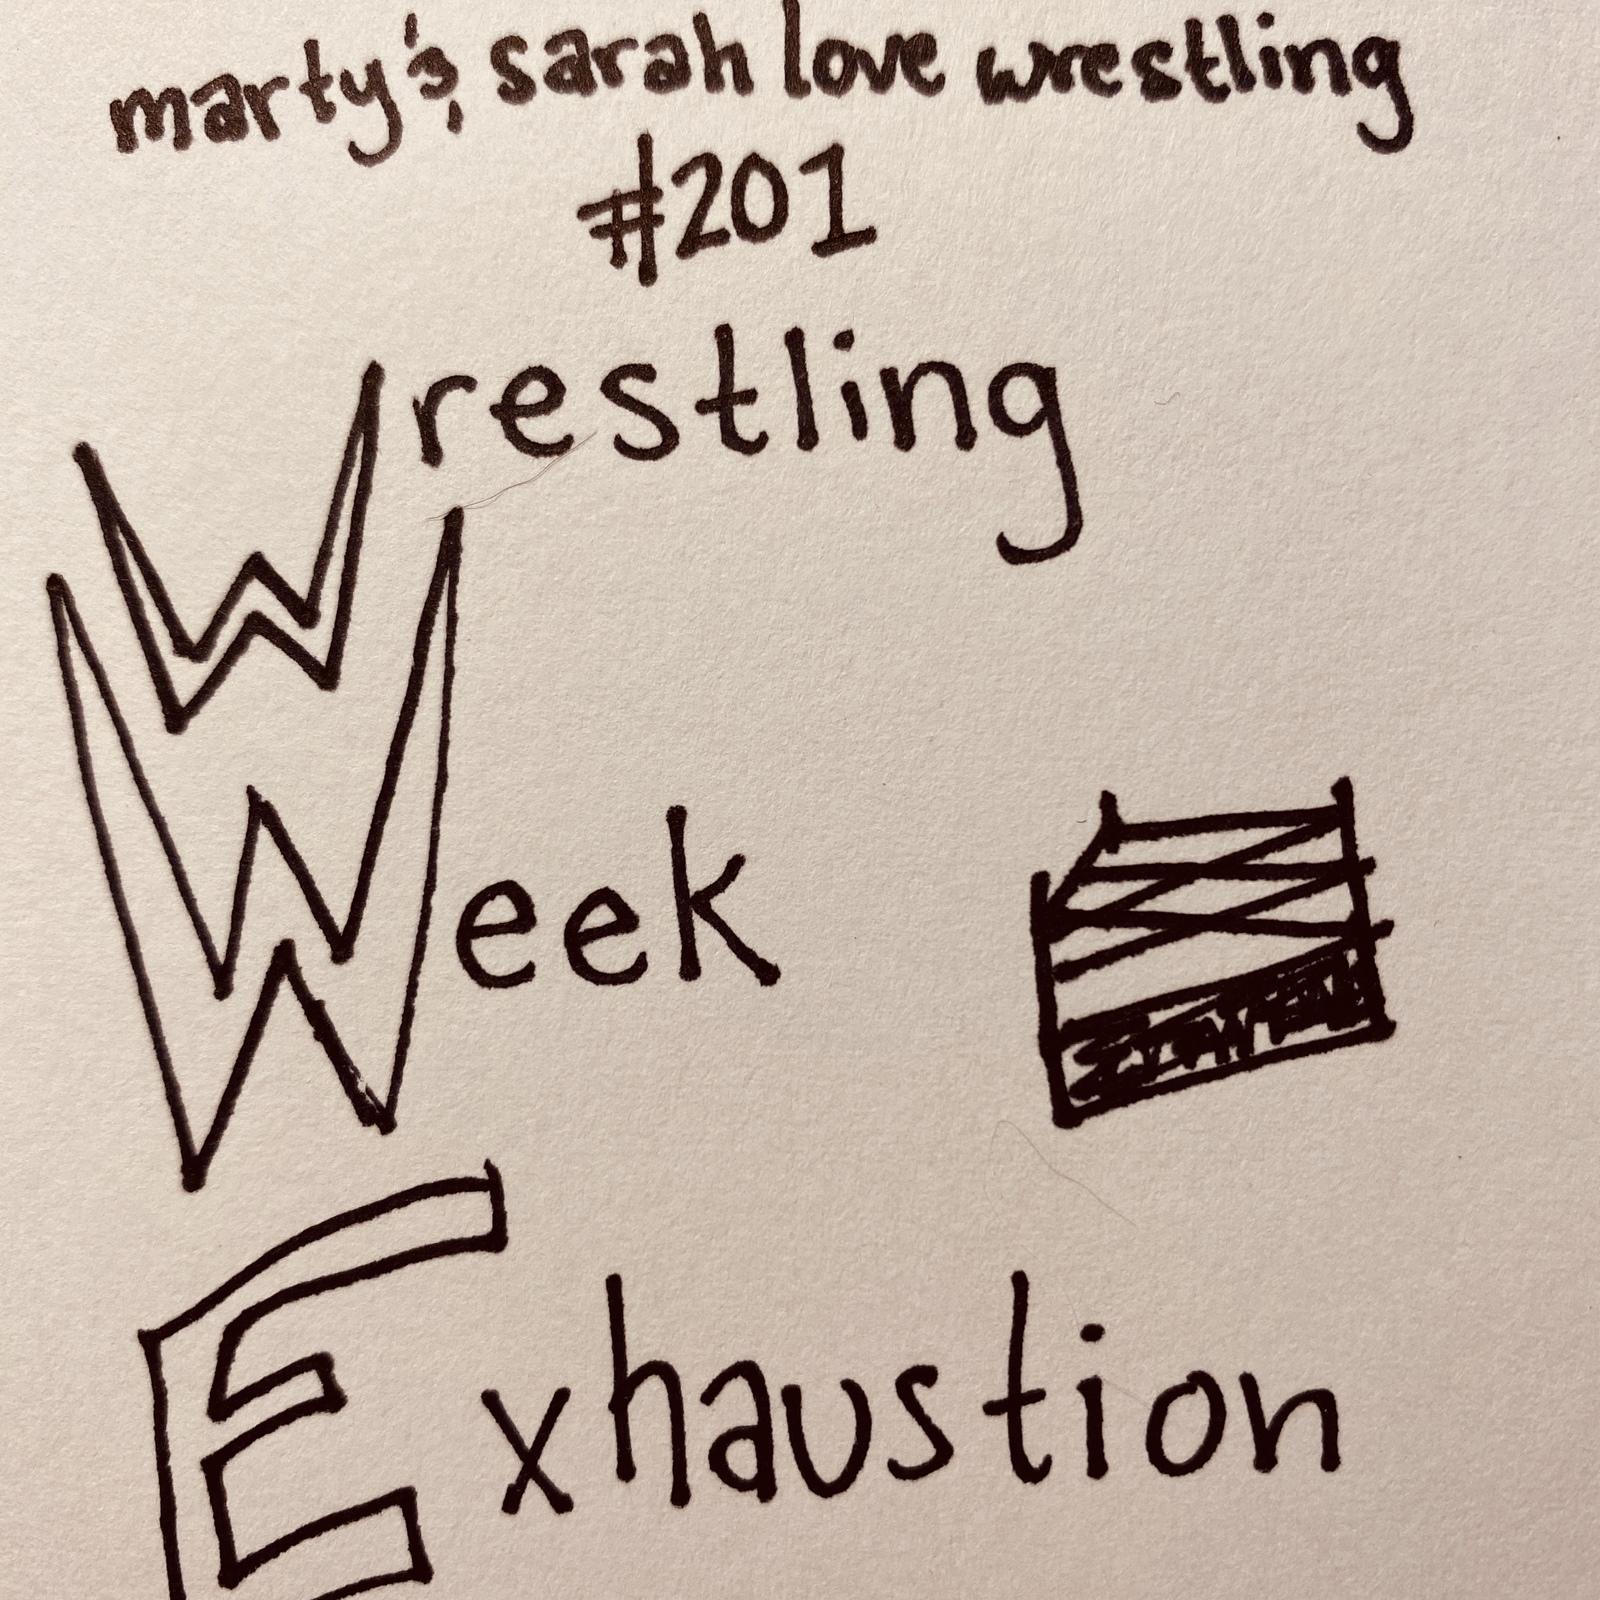 marty & sarah love wrestling
#201
Wrestling
Week
Exhaustion